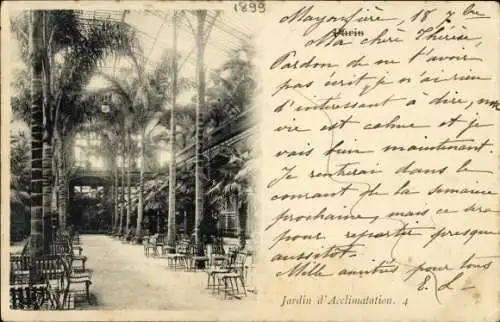 1899
Paris
Mayenfière, 18 7bre
Ma chère Thérèse,
Pardon de ne t'avoir
pas écrit, je n'ai rien
d'intéressant à dire, mon
vie est calme et je
vais bien maintenant.
Je rentrerai dans le
courant de la semaine
prochaine, mais ce sera
pour repartir presque
aussitôt.
Mille amitiés pour tous
E. L.
Jardin d'Acclimatation. 4